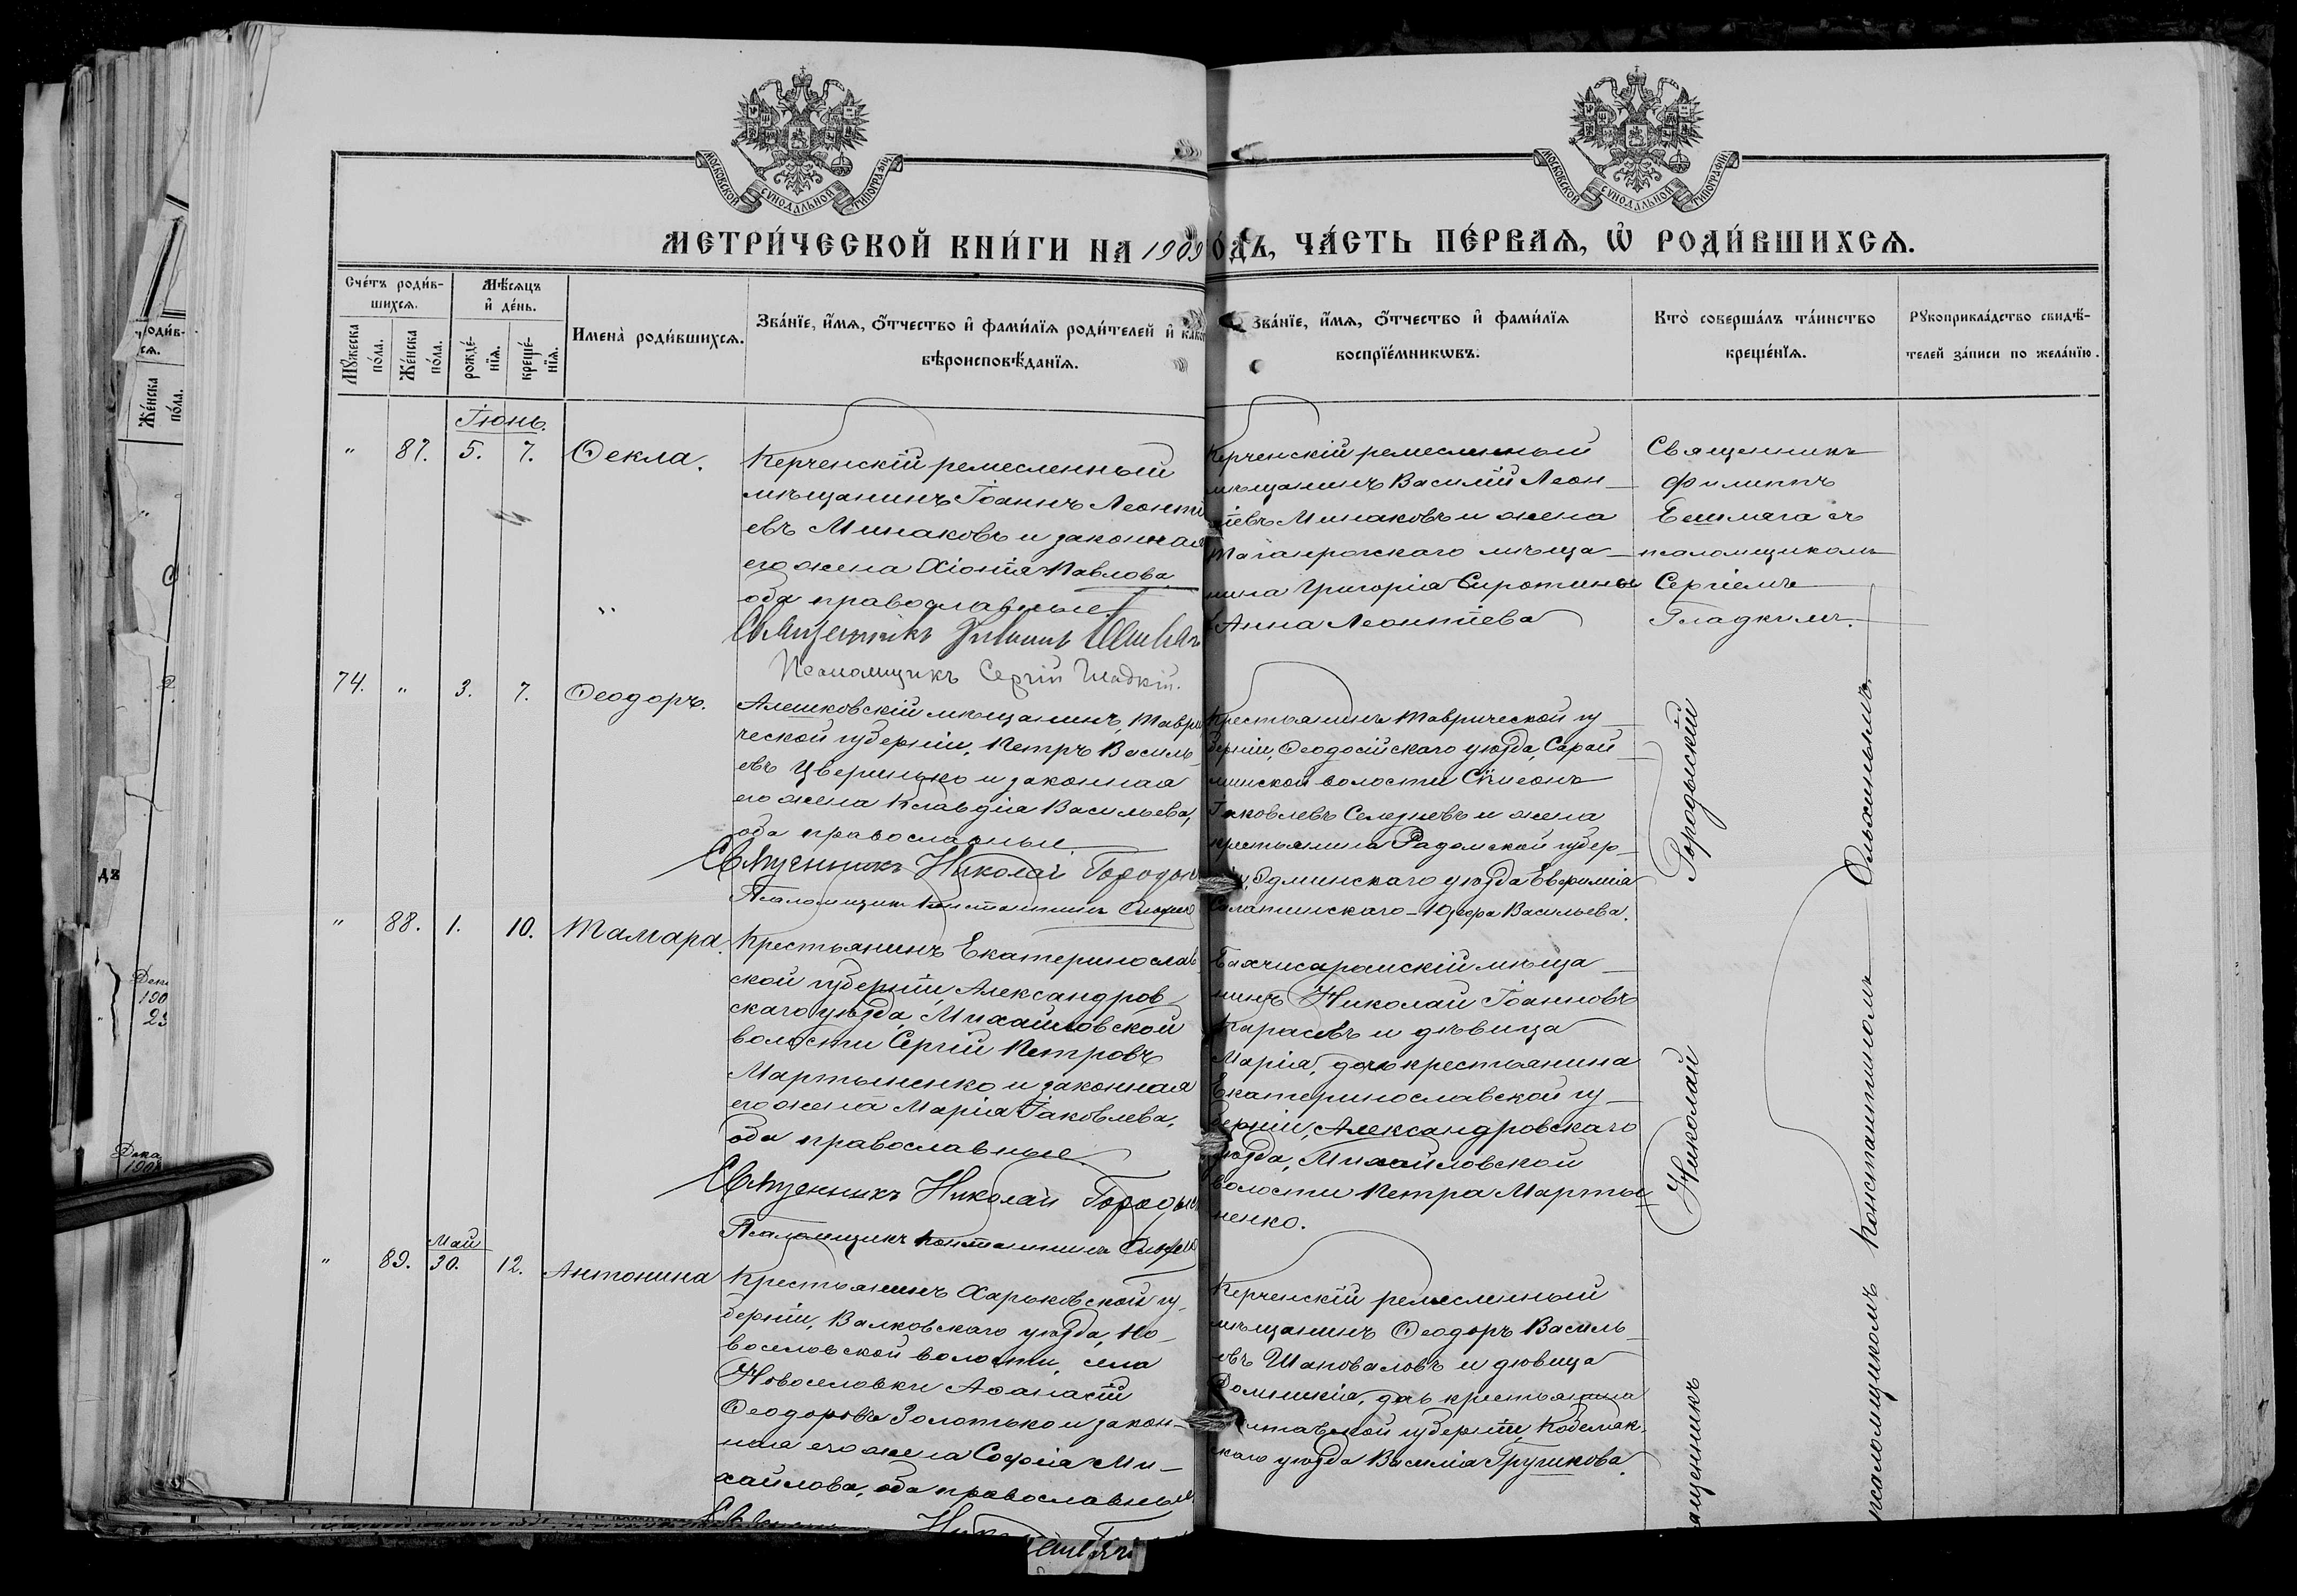 МОСКОВСКОЙ СѴНОДАЛЬНОЙ ТИПОГРАФІИ
МОСКОВСКОЙ СѴНОДАЛЬНОЙ ТИПОГРАФІИ
МЕТРИ́ЧЕСКОЙ КНИ́ГИ НА 1909 ГО́ДЪ, ЧА́СТЬ ПЕ́РВАѦ, Ѡ҆ РОДИ́ВШИХСѦ.
Сче́тъ роди́в-
шихсѧ.
Мꙋ́жеска по́ла.
Же́нска по́ла.
Мѣ́сѧцъ
и҆ де́нь.
рожде́-
нїѧ.
креще́-
нїѧ.
Имена̀ роди́вшихсѧ.
Зва́нїе, и҆́мѧ, ѻ҆́тчество и҆ фами́лїѧ роди́телей и҆ како
вѣроисповѣ́данїѧ.
Зва́нїе, и҆́мѧ, ѻ҆́тчество и҆ фами́лїѧ
воспрїе́мникѡвъ.
Кто̀ соверша́лъ та́инство
креще́нїѧ.
Рꙋкоприкла́дство свидѣ́-
телей за́писи по жела́нїю.
Іюнь.
" 87. 5. 7. Ѳекла.
Керченскій ремесленный
мѣщанинъ Іоаннъ Леонті
евъ Минаковъ и законная
его жена Хіонія Павлова,
оба православные.
Священникъ Филиппъ
Псаломщикъ Сергій Гладкій.
Керченскій ремесленный
мѣщанинъ Василій Леон-
тіевъ Минаковъ и жена
Таганрогскаго мѣща-
нина Григорія Сиротина
Анна Леонтіева
Священникъ
Филиппъ
Ешмяга съ
псаломщикомъ
Сергіемъ
Гладкимъ.
74. " 3. 7. Ѳеодоръ.
Алешковскій мѣщанинъ, Таври
ческой губерніи, Петръ Василь-
евъ Цверинько и законная
его жена Клавдія Васильева,
оба православные.
Священникъ Николай Городы
Псаломщикъ Константинъ
Крестьянинъ Таврической гу-
берніи, Ѳеодосійскаго уѣзда, Сарай-
минской волости Сѵмеонъ
Іаковлевъ Селезневъ и жена
крестьянина Радомской губер-
уѣзда Евфимія
Васильева.
" 88. 1. 10. Тамара.
Крестьянинъ Екатеринослав
ской губерніи, Александров-
скаго уѣзда, Михайловской
волости Сергій Петровъ
Мартыненко и законная
его жена Марія Іаковлева,
оба православные.
Священникъ Николай Городы
Псаломщикъ Константинъ
Бахчисарайскій мѣща-
нинъ Николай Іоанновъ
Тарасевъ и дѣвица
Марія, дочь крестьянина
Екатеринославской гу-
берніи, Александровскаго
уѣзда, Михайловской
волости Петра Марты-
ненко.
Май
" 89. 30. 12. Антонина
Крестьянинъ Харьковской гу-
берніи, Валковскаго уѣзда, Но-
воселовской волости, села
Новоселовки Аѳанасій
Ѳеодоровъ Золотько и закон-
ная его жена Софія Ми-
хайлова, оба православные
Керченскій ремесленный
мѣщанинъ Ѳеодоръ Василь-
евъ Шаповаловъ и дѣвица
Домникія, дочь крестьянина
губерніи, Кобеляк-
скаго уѣзда Василія Грушкова.
ященникъ Николай Городыскій
псаломщикомъ Константиномъ